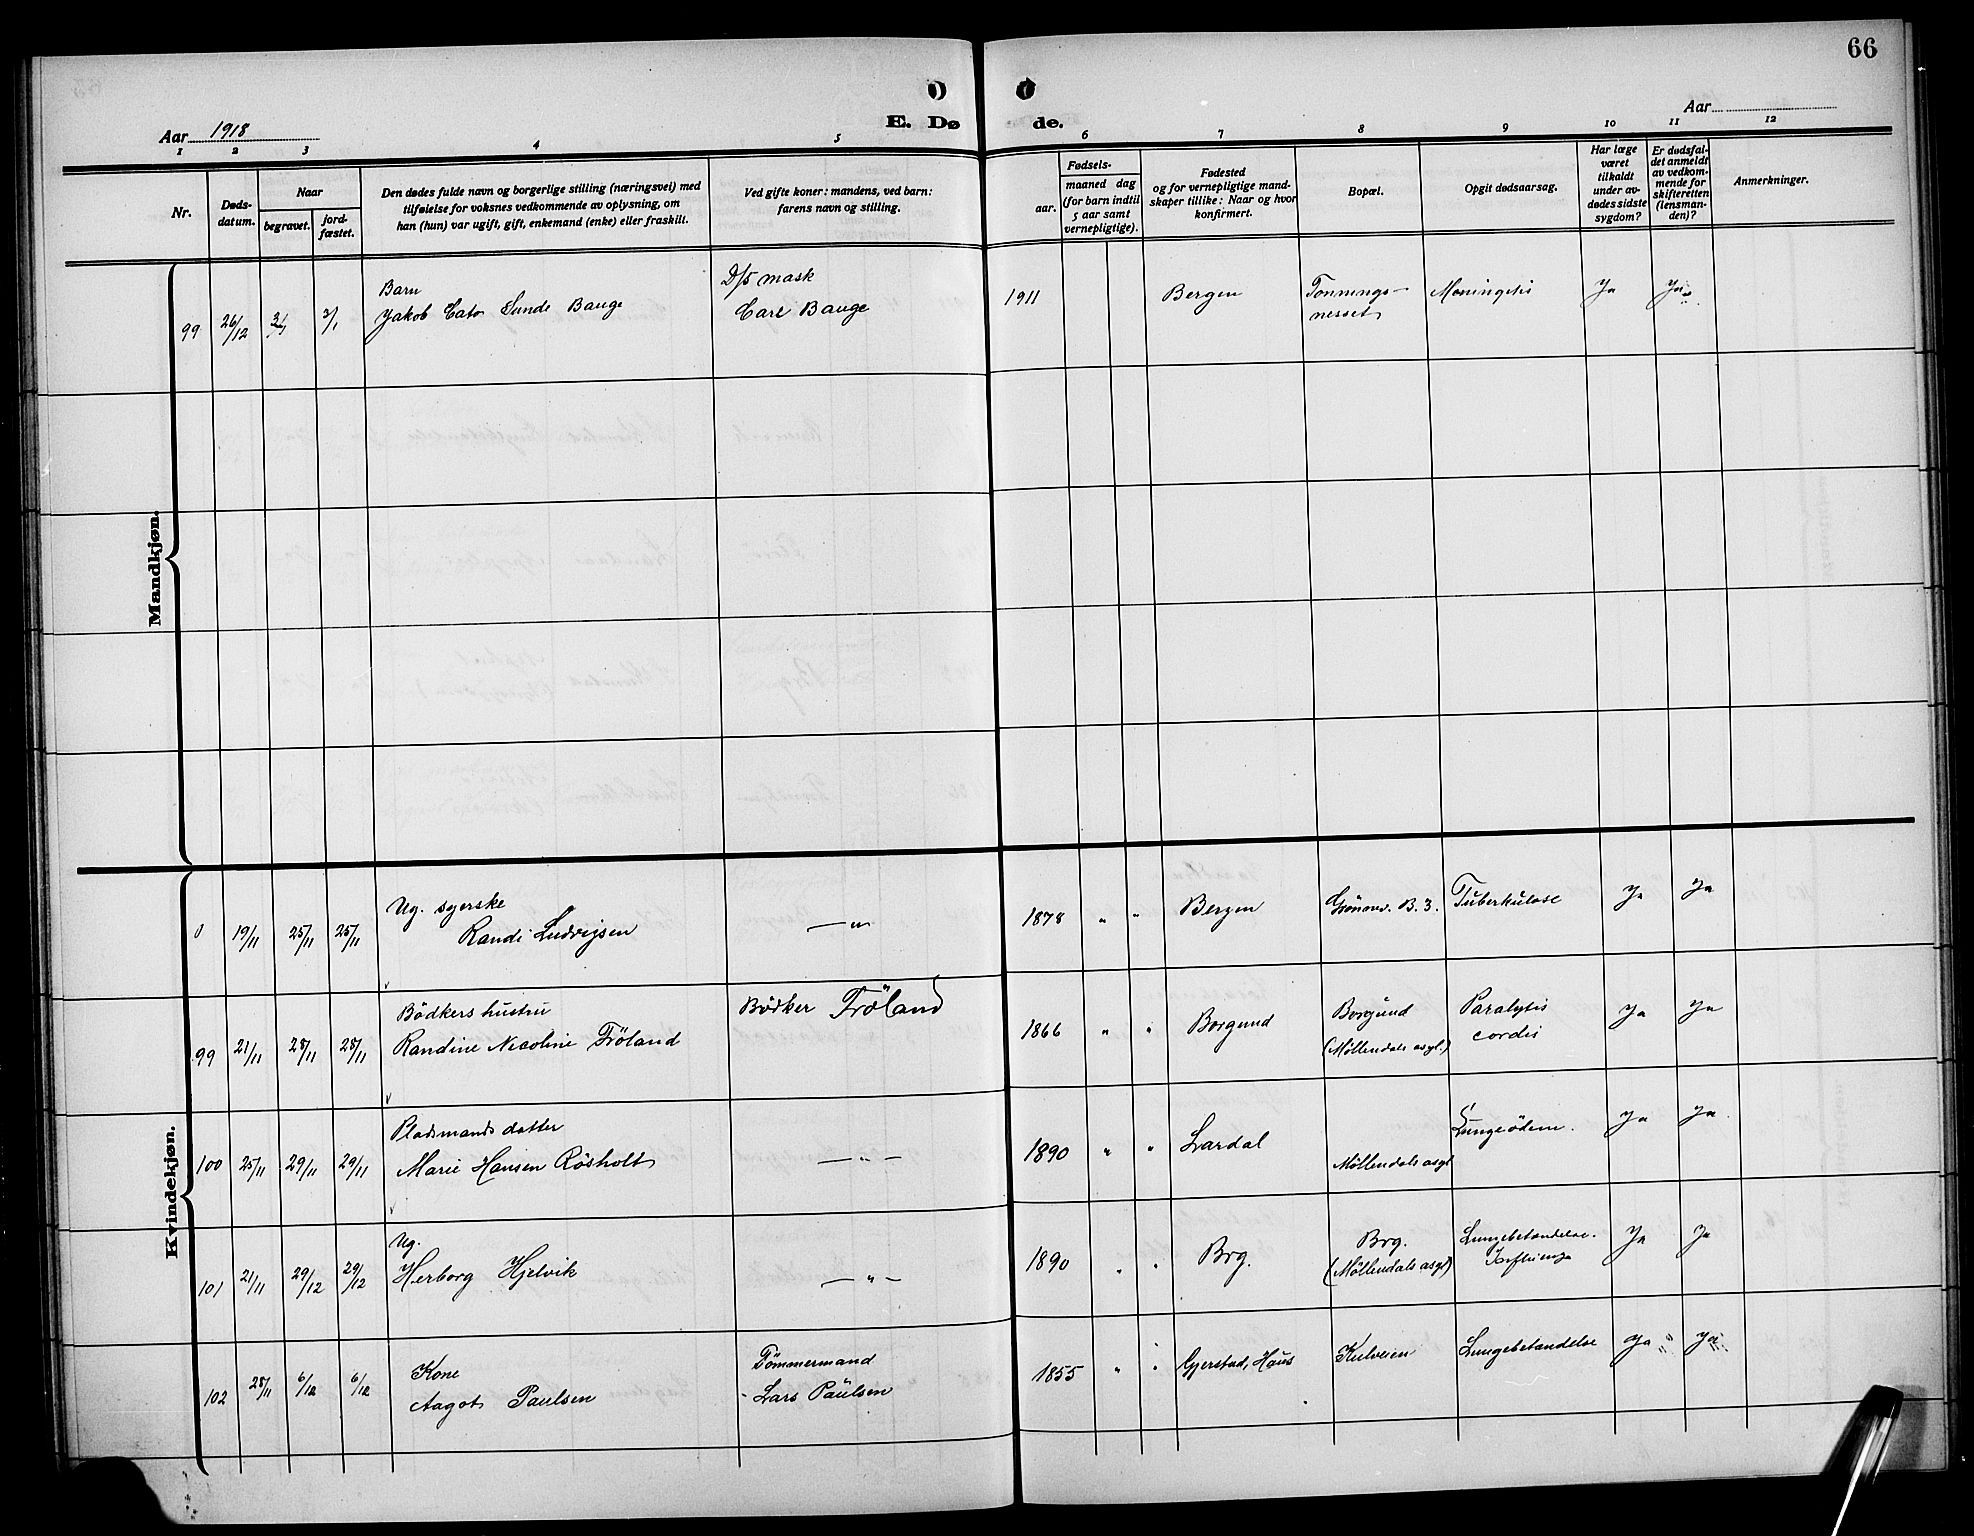 66
Aar 1918
E. Dø de.
Aar
1 2 3 4 5 6 7 8 9 10 11 12
Nr.
Døds-
datum.
Naar
begravet.
jord-
fæstet.
Den dødes fulde navn og borgerlige stilling (næringsvei) med
tilføielse for voksnes vedkommende av oplysning, om
han (hun) var ugift, gift, enkemand (enke) eller fraskilt.
Ved gifte koner: mandens, ved barn:
farens navn og stilling.
Fødsels-
aar.
maaned dag
(for barn indtil
5 aar samt
vernepligtige).
Fødested
og for vernepligtige mand-
skaper tillike: Naar og hvor
konfirmert.
Bopæl.
Opgit dødsaarsag.
Har læge
været
tilkaldt
under av-
dødes sidste
sygdom?
Er dødsfal-
det anmeldt
av vedkom-
mende for
skifteretten
(lensman-
den)?
Anmerkninger.
Mandkjøn.
Barn D/S mask
99 26/12 3/1 Jakob Cato Sunde Bauge Carl Bauge 1911 Bergen Tonnings-
nesset Meningitis Ja Ja
Kvindekjøn.
Ug. syerske
19/11 25/11 25/11 Randi Ludvigsen —„— 1878 „ „ Bergen B. 3. Tuberkulose Ja Ja
Bödkers hustru Bödker Fröland
99 21/11 28/11 28/11 Randine Nicoline Fröland 1866 „ „ Borgund Borgund
(Möllendals asyl.) Paralysis
cordis Ja Ja
Pladsmands datter
100 25/11 29/11 29/11 Marie Hansen Rösholt —„— 1890 „ „ Lardal Möllendals asyl Lungeödem. Ja Ja
Ug.
101 21/11 29/12 29/12 Herborg Hjelvik —„— 1890 „ „ Brg. Brg.
(Möllendals asyl) Lungebetændelse.
Influenza Ja Ja
Kone Tömmermand
102 28/11 6/12 6/12 Aagot Paulsen Lars Paulsen 1855 „ „ Gjerstad, Haus Kulveien Lungebetændelse Ja Ja